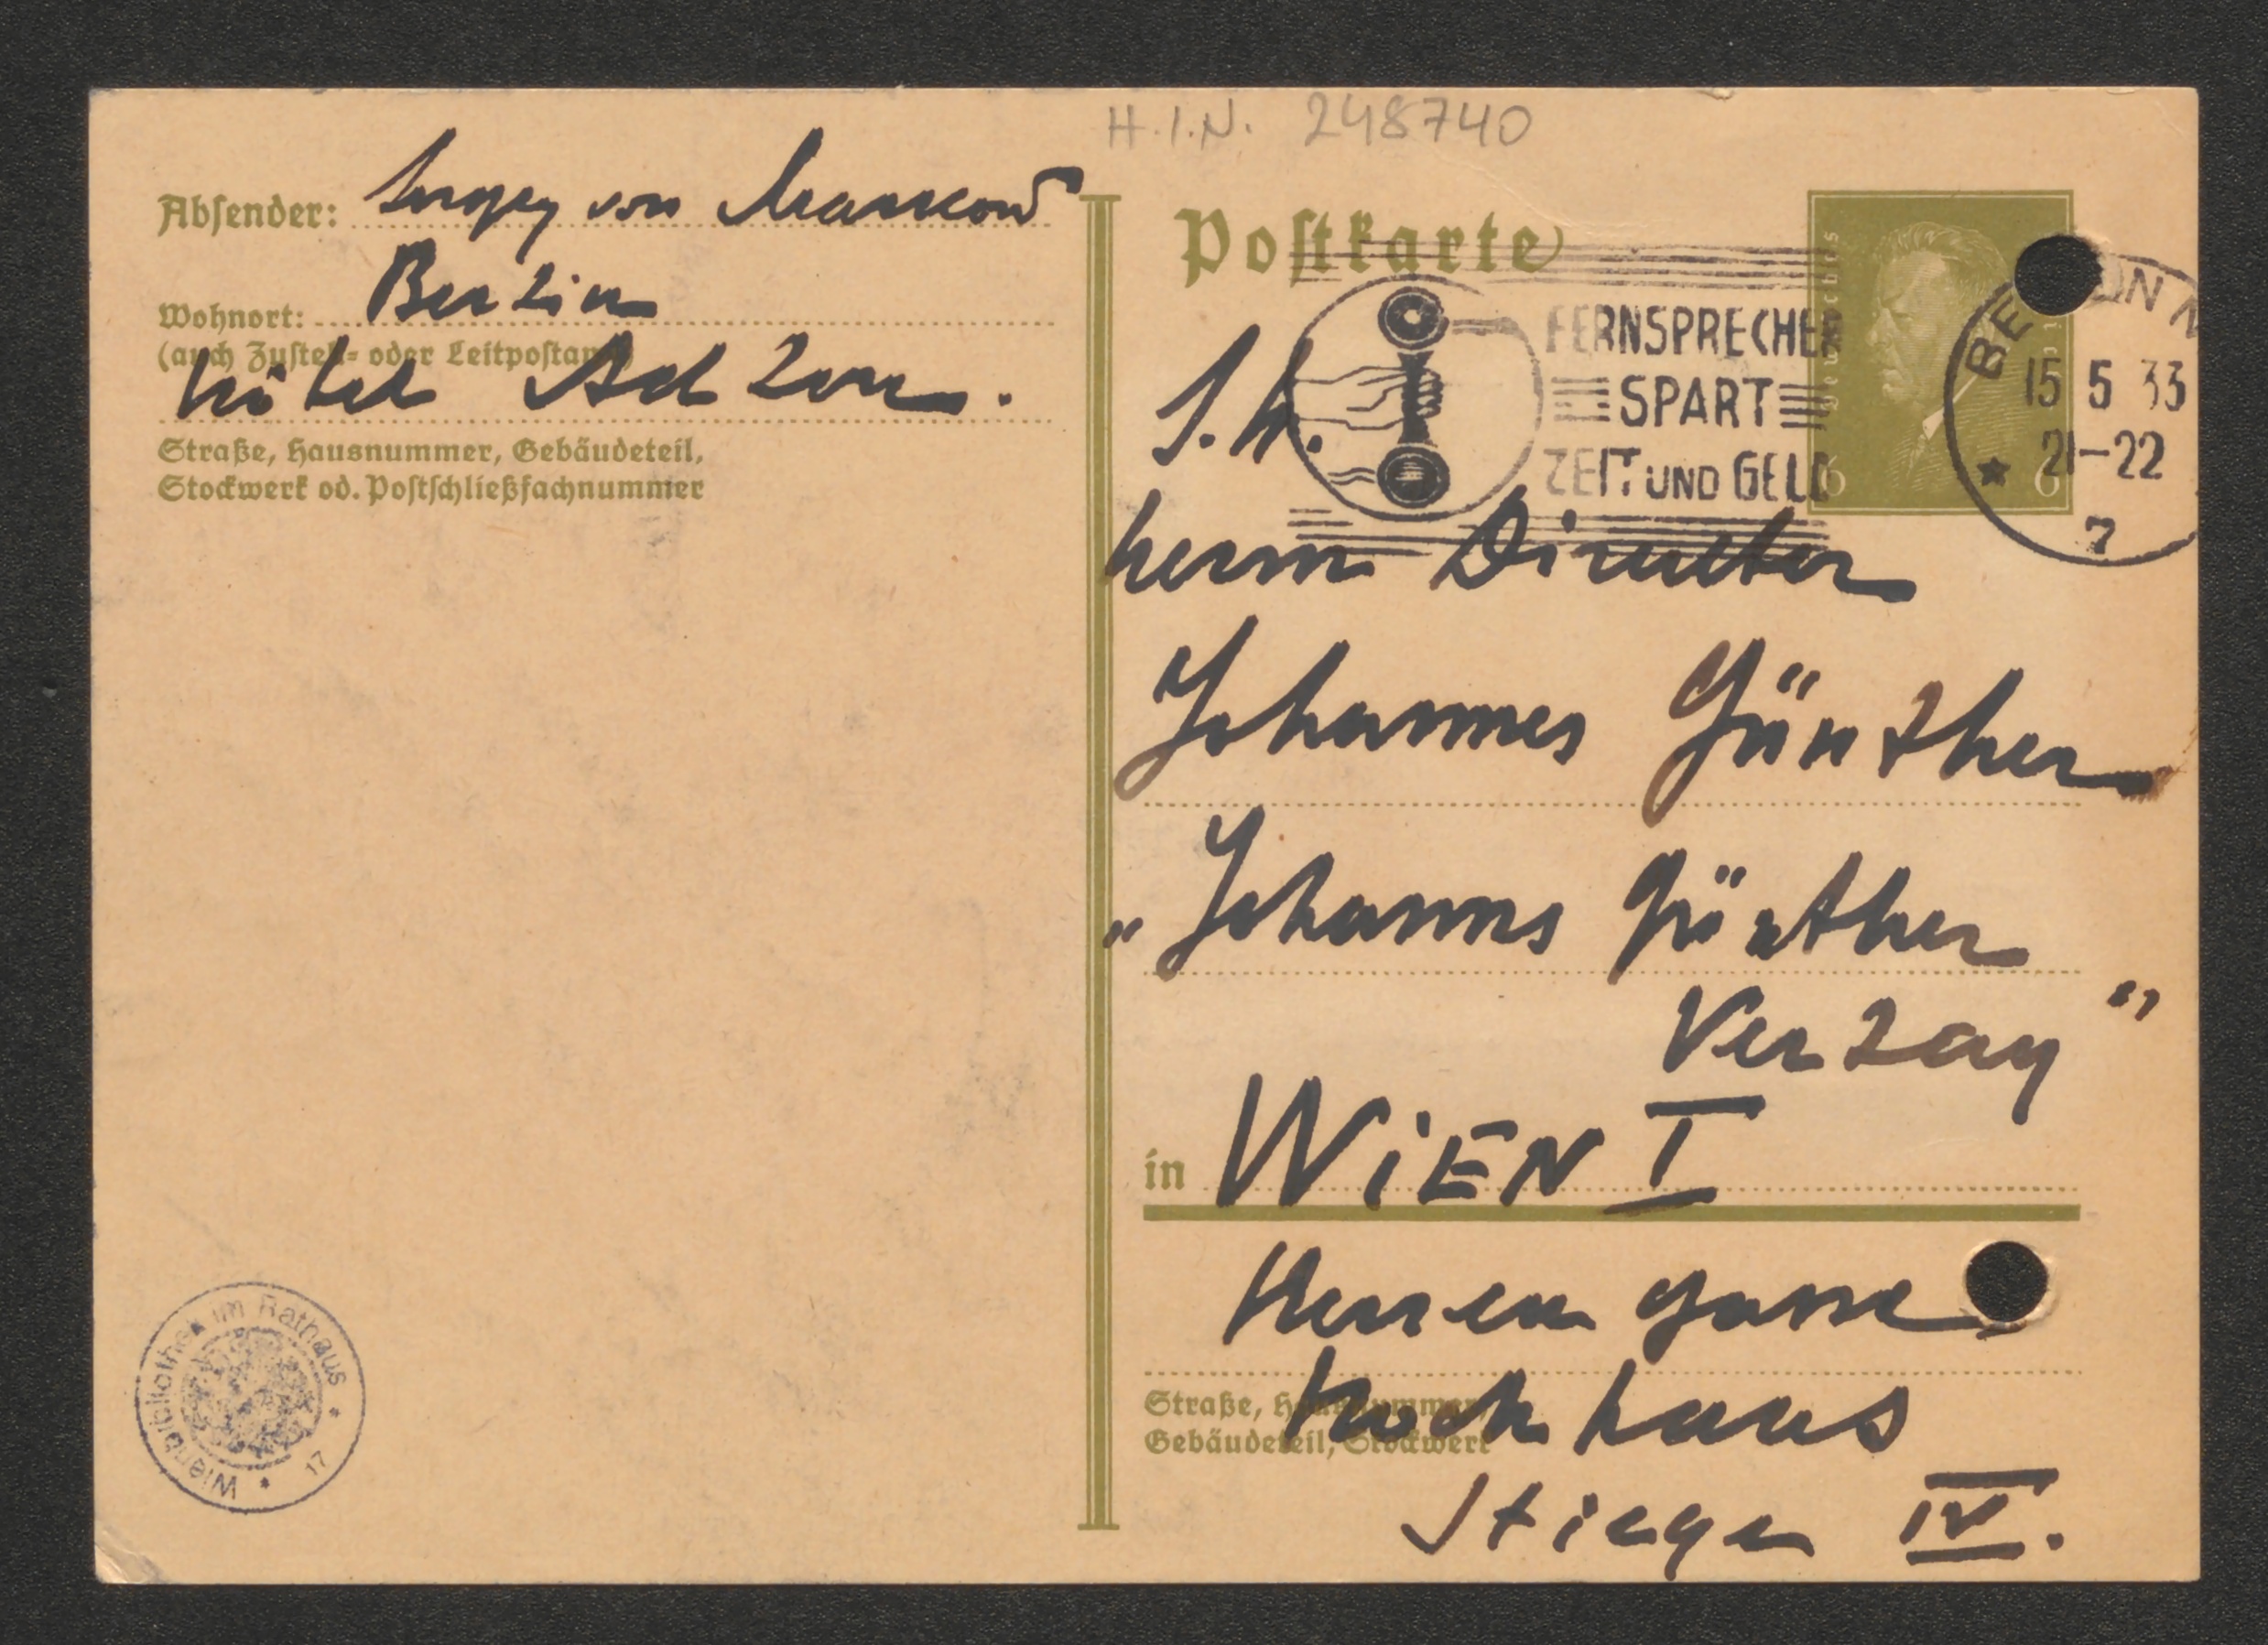 H.I.N. 248740
Absender: Sergey von Markow
Wohnort: Berlin
(auch Zustell- oder Leitpostamt)
Hôtel Adlon.
Straße, Hausnummer, Gebäudeteil,
Stockwerk od. Postschließfachnummer
Postkarte
FERNSPRECHEN
SPART
ZEIT UND GELD
Deutsches Reich
6 6
BERLIN N
15 5 33
21-22
7
S.H.
Herrn Director
Johannes Günther
„Johannes Günther
Verlag"
in WIEN I
Herrengasse
Hochhaus
Straße, Hausnummer,
Gebäudeteil, Stockwerk
Stiege IV.
Wienbibliothek im Rathaus * 17 *